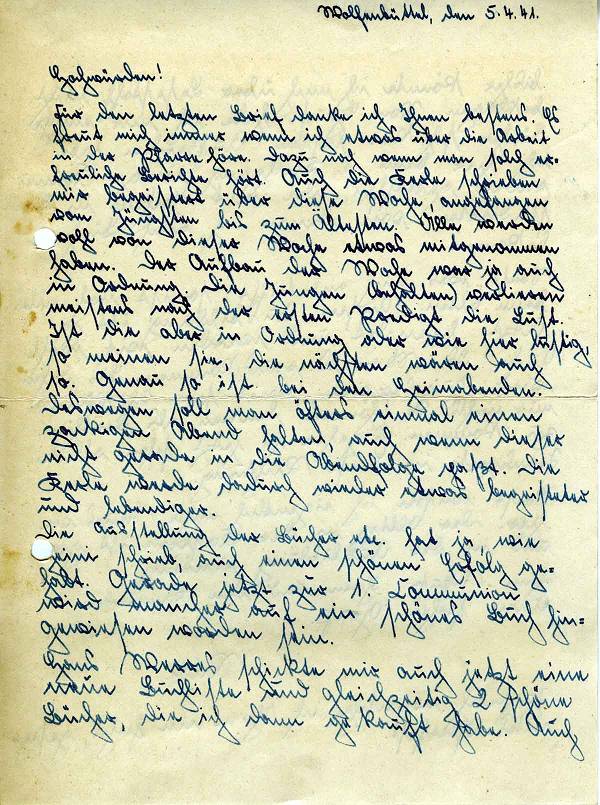 Wolfenbüttel, den 5.4.41.
Hochwürden!
Für den letzten Brief danke ich Ihnen bestens. Es
freut mich immer wenn ich etwas über die Arbeit
in der Pfarre höre. Dazu noch wenn man solch er-
freuliche Berichte hört. Auch die Kerle schrieben
mir begeistert über diese Woche, angefangen
vom Jüngsten bis zum Ältesten. Alle werden
wohl von dieser Woche etwas mitgenommen
haben. Der Aufbau der Woche war ja auch
in Ordnung. Die Jungen (behalten) verlieren
meistens nach der ersten Predigt die Lust.
Ist die aber in Ordnung oder wie hier lustig,
so meinen sie, die nächsten wären auch
so. Genau so ist bei den Heimabenden.
Deswegen soll man öfters einmal einen
zackigen Abend halten, auch wenn dieser
nicht gerade in die Abendfolge paßt. Die
Kerle werde dadurch wieder etwas begeisteter
und lebendiger.
Die Ausstellung der Bücher etc. hat ja wie
Heini schrieb, auch einen schönen Erfolg ge=
habt. Gerade jetzt zur 1. Communion
wird mancher auf ein schönes Buch hin=
gewiesen worden sein.
Hans Werres schickte mir auch jetzt eine
neue Buchliste und gleichzeitig 2 schöne
Bücher, die ich dann gekauft habe. Auch